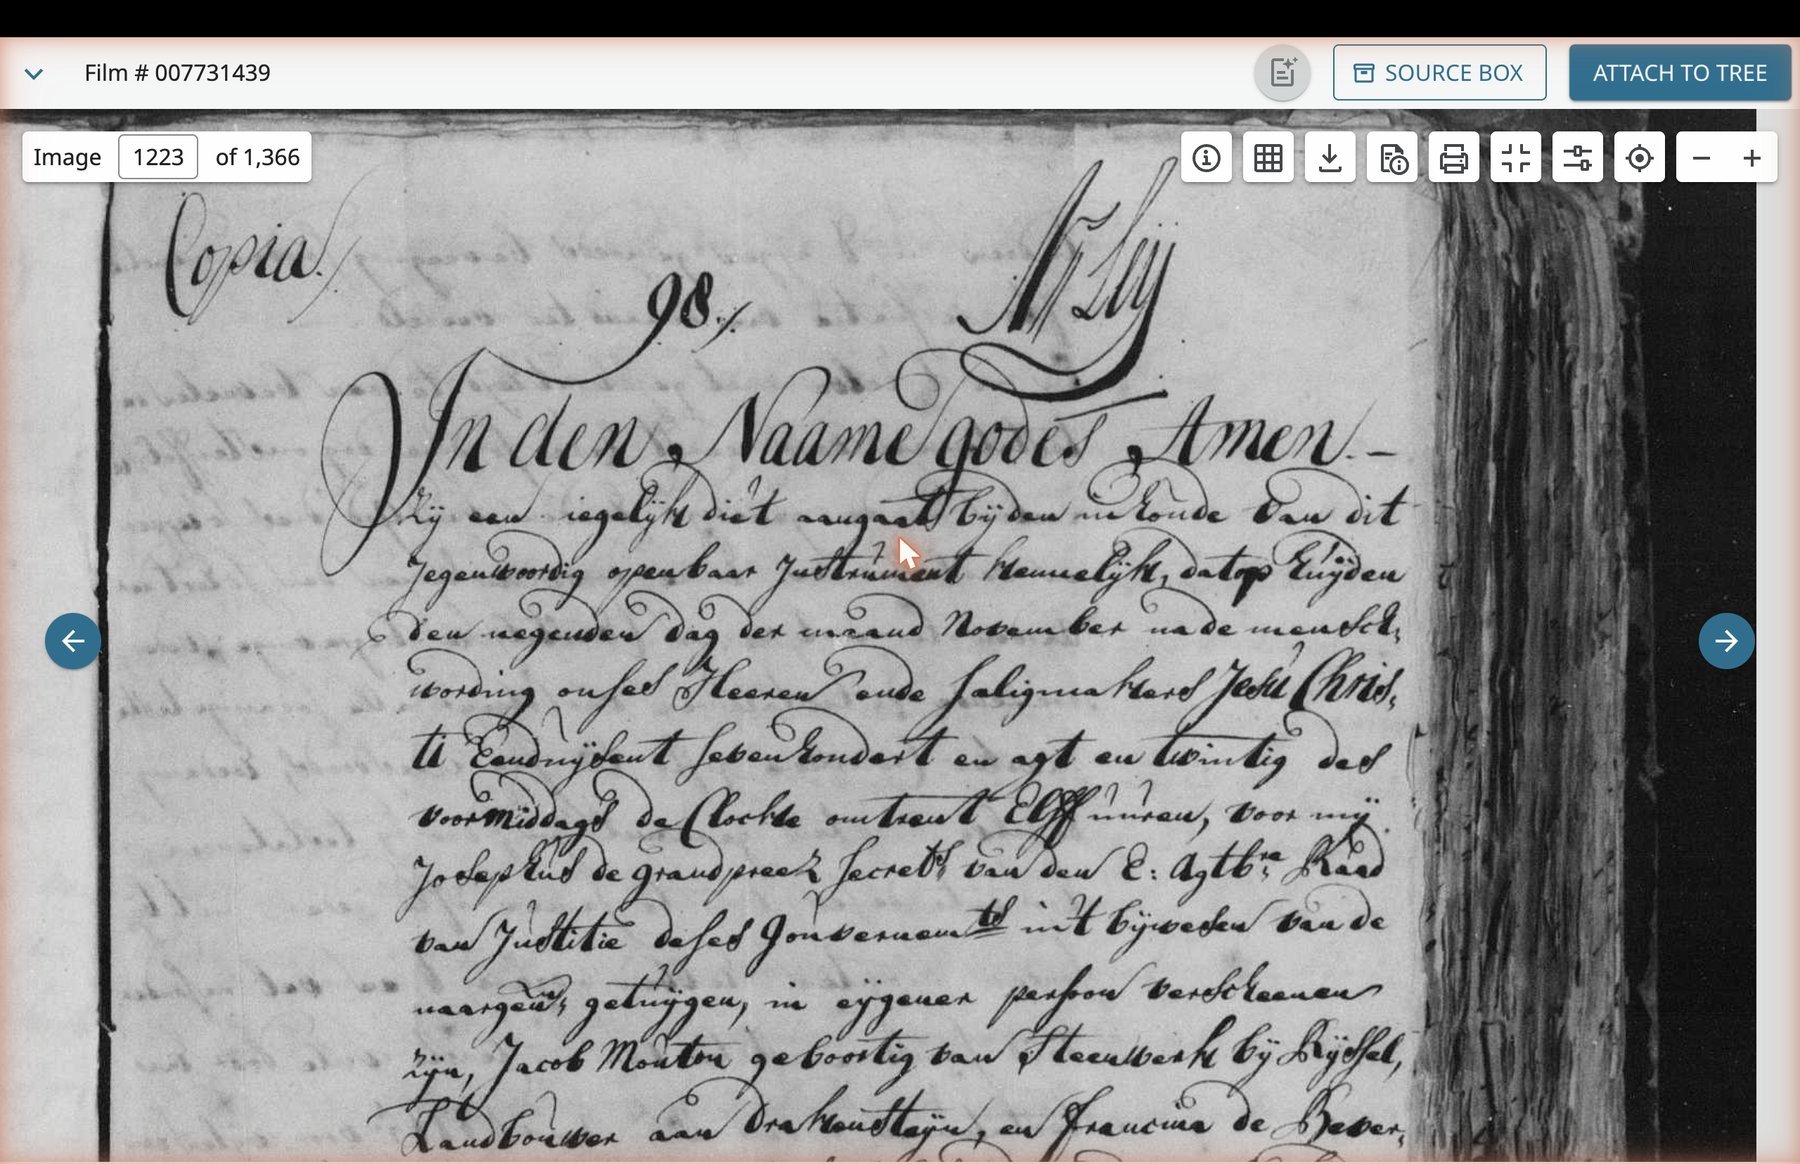 Film # 007731439
SOURCE BOX
ATTACH TO TREE
Image 1223 of 1,366
Copia.
98./.
In den Naame godes Amen. –
Zij een iegelijk die't aangaat bij den inhoude van dit
Jegenwoordig openbaar Instrument kennelijk, dat op huijden
den negenden dag der maand November na de mensch,
wording onses Heeren ende saligmakers Jesu Chris,
ti Eenduijsent sevenhondert en agt en twintig des
voormiddags de Clocke omtrent Elff uuren, voor mij
Josephus de grandpreez secrets. van den E: Agtbre. Raad
van Justitie deses gouvernemts in't bijwesen van de
naargen: getuijgen, in eijgener persoon verscheenen
zijn, Jacob Mouton geboortig van Steenwerk bij Rijssel,
Landbouwer aan Drakensteijn, en francina de Bever,